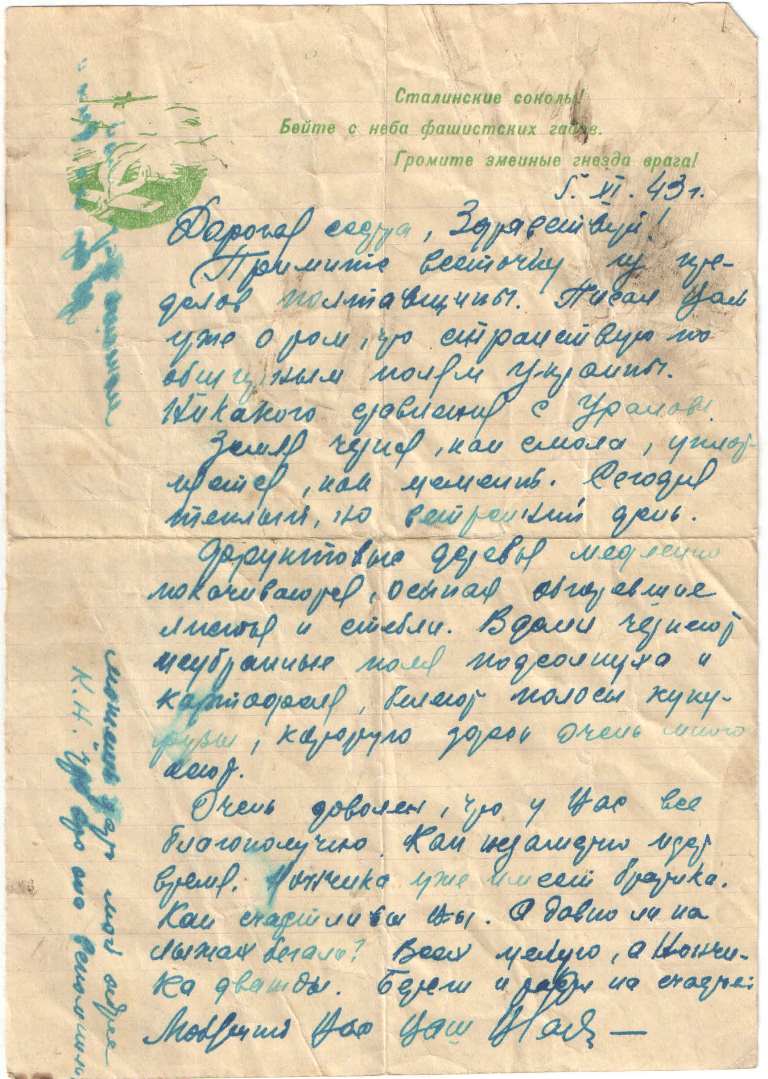 Сталинские соколы!
Бейте с неба фашистских гадов.
Громите змеиные гнезда врага!
5. XI. 43 г.
Дорогая сестра, Здравствуй!
Примите весточку из пре-
делов полтавщины. Писал Вам
уже о том, что странствую по
обширным полям Украины.
Никакого сравнения с Уралом.
Земля черная, как смола,
как цемент. Сегодня
теплый, но ветренный день.
Фруктовые деревья медленно
покачиваются, осыпая обгоревшие
листья и стебли. Вдали чернеют
неубранные поля подсолнуха и
картофеля, белеют полосы куку-
рузы, которую здесь очень много
сеют.
Очень доволен, что у Вас все
благополучно. Как незаметно идет
время. уже имеет братика.
Как счастливы Вы. А давно ли на
лыжах бегали? Всех целую, а
дважды. Береги и расти на счастье.
Любящий Вас Ваш
можешь дать мой адрес
К.Н. что это она вспомнила